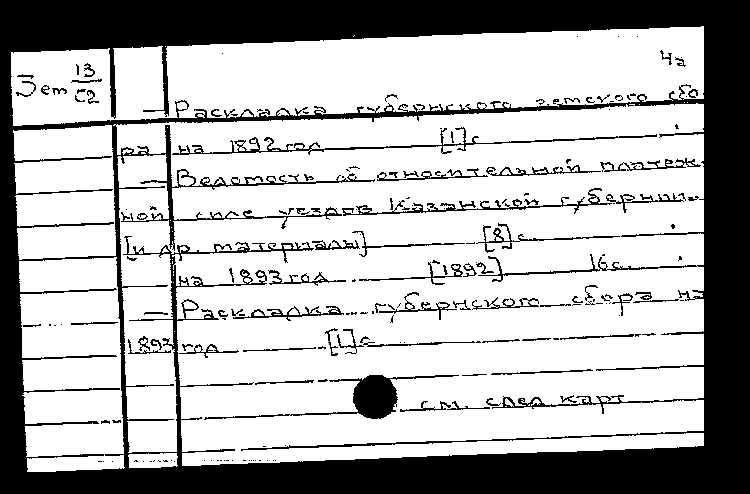 4а
Зем 13/С2
— Раскладка губернского земского сбо-
ра на 1892 год [1] с.
— Ведомость об относительной платеж-
ной силе уездов Казанской губернии..
[и др. материалы] [8] с.
на 1893 год [1892] 16с.
— Раскладка губернского сбора на
1893 год [1] с
см. след карт